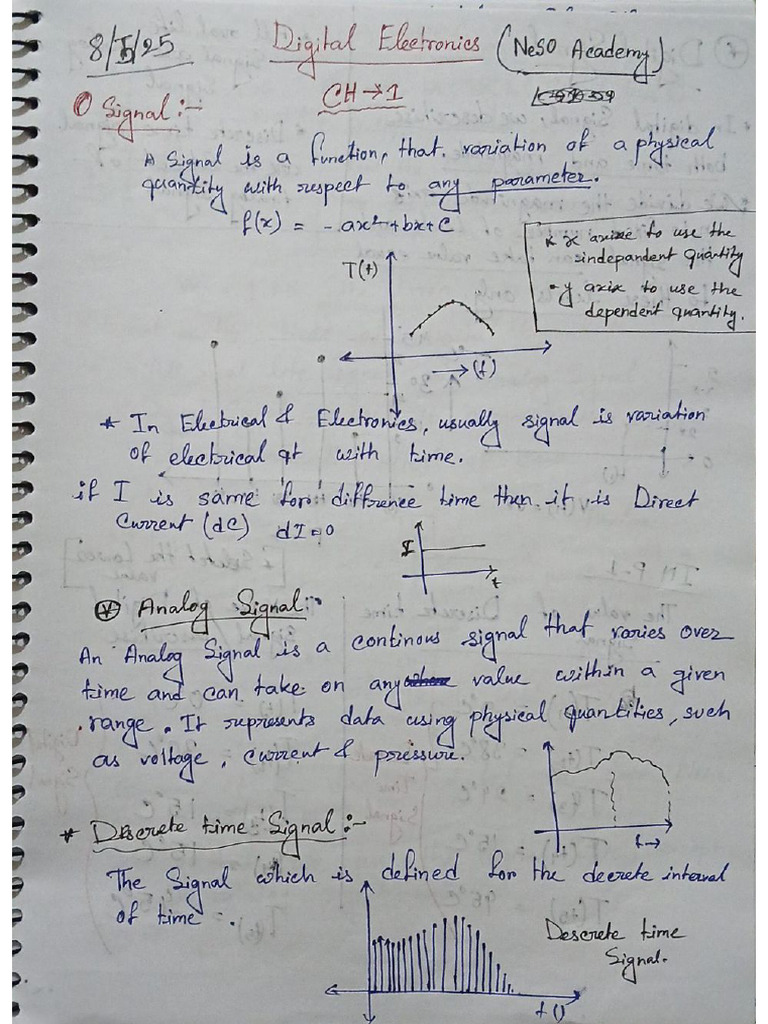 8/5/25 Digital Electronics (NeSO Academy)
CH→1
① Signal:-
A Signal is a function, that variation of a physical
quantity with respect to any parameter.
f(x) = -ax²+bx+C
* x axise to use the
independant quantity
• y axix to use the
dependent quantity.
T(t)
→(t)
* In Electrical & Electronics, usually signal is variation
of electrical qt with time.
if I is same for difference time then it is Direct
Current (dC) dI=0
I
t
Analog Signal:-
An Analog Signal is a continous signal that varies over
time and can take on any value within a given
range. It represents data using physical quantities, such
as voltage, current & pressure.
t→
* Discrete time Signal:-
The Signal which is defined for the decrete interval
of time.
Descrete time
Signal.
t()